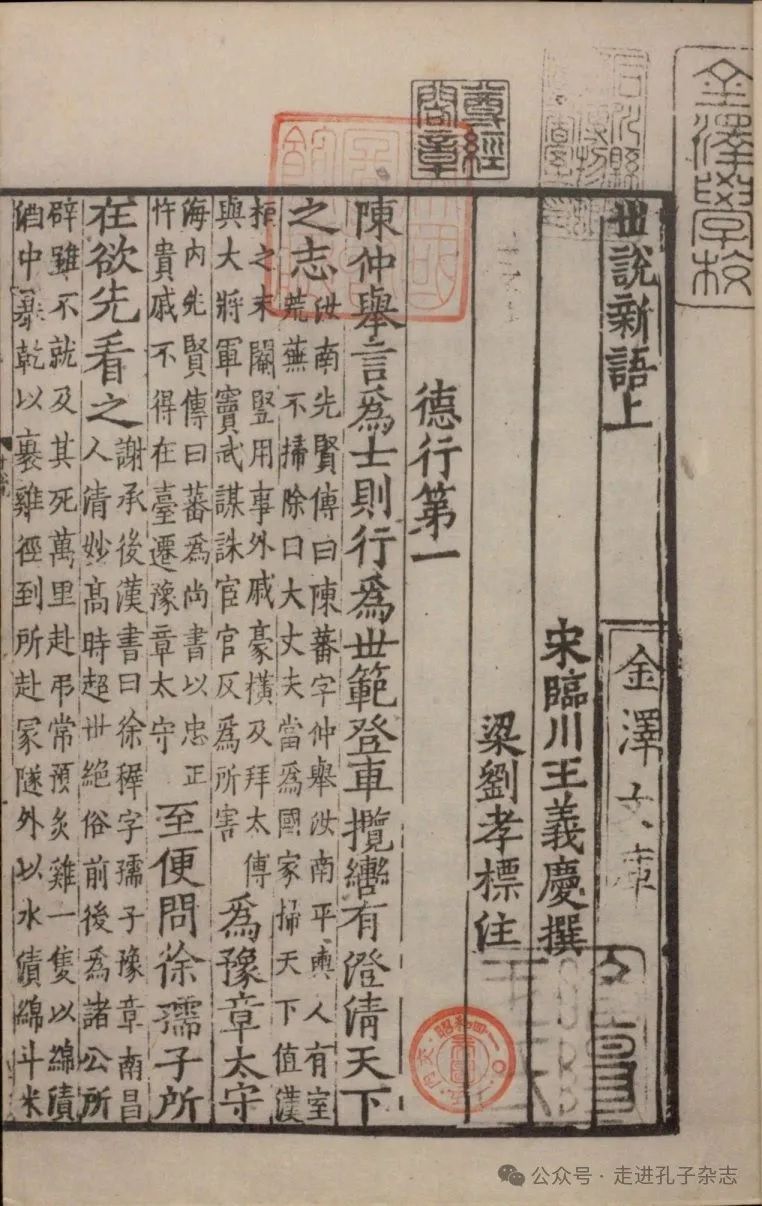 金澤學校
尊經閣章
世說新語上
金澤文庫
宋臨川王義慶撰
梁劉孝標注
德行第一
陳仲舉言爲士則行爲世範登車攬轡有澄清天下
之志
汝南先賢傳曰陳蕃字仲舉汝南平輿人有室
荒蕪不掃除曰大丈夫當爲國家掃天下值漢
桓之末閹豎用事外戚豪橫及拜太傅
與大將軍竇武謀誅宦官反爲所害
爲豫章太守
海內先賢傳曰蕃爲尚書以忠正
忤貴戚不得在臺遷豫章太守
至便問徐孺子所
在欲先看之
謝承後漢書曰徐穉字孺子豫章南昌
人清妙高時超世絕俗前後爲諸公所
辟雖不就及其死萬里赴弔常預炙雞一隻以綿漬
酒中暴乾以裹雞徑到所赴冢隧外以水漬綿斗米
公众号·走进孔子杂志